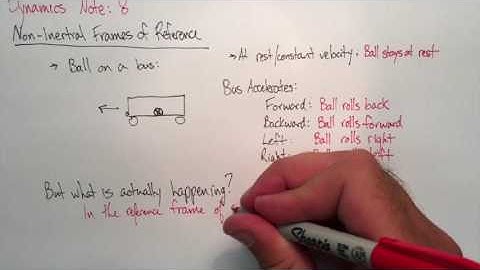 Dynamics Note: 8
Non-Inertial Frames of Reference
→ Ball on a bus:
→ At rest/constant velocity · Ball stays at rest
Bus Accelerates:
Forward: Ball rolls back
Backward: Ball rolls forward
Left: Ball rolls right
Right: left
But what is actually happening?
In the reference frame of
Sharpie